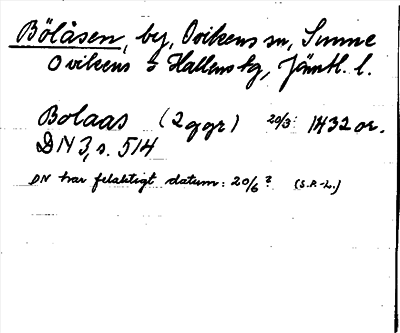 Bölåsen, by, Ovikens sn, Sunne
Ovikens o Hallens tg, Jämtl. l.
Bolaas (2 ggr) 20/3: 1432 or.
DN 3, s. 514
DN har felaktigt datum: 20/6? (S.P.-L.)